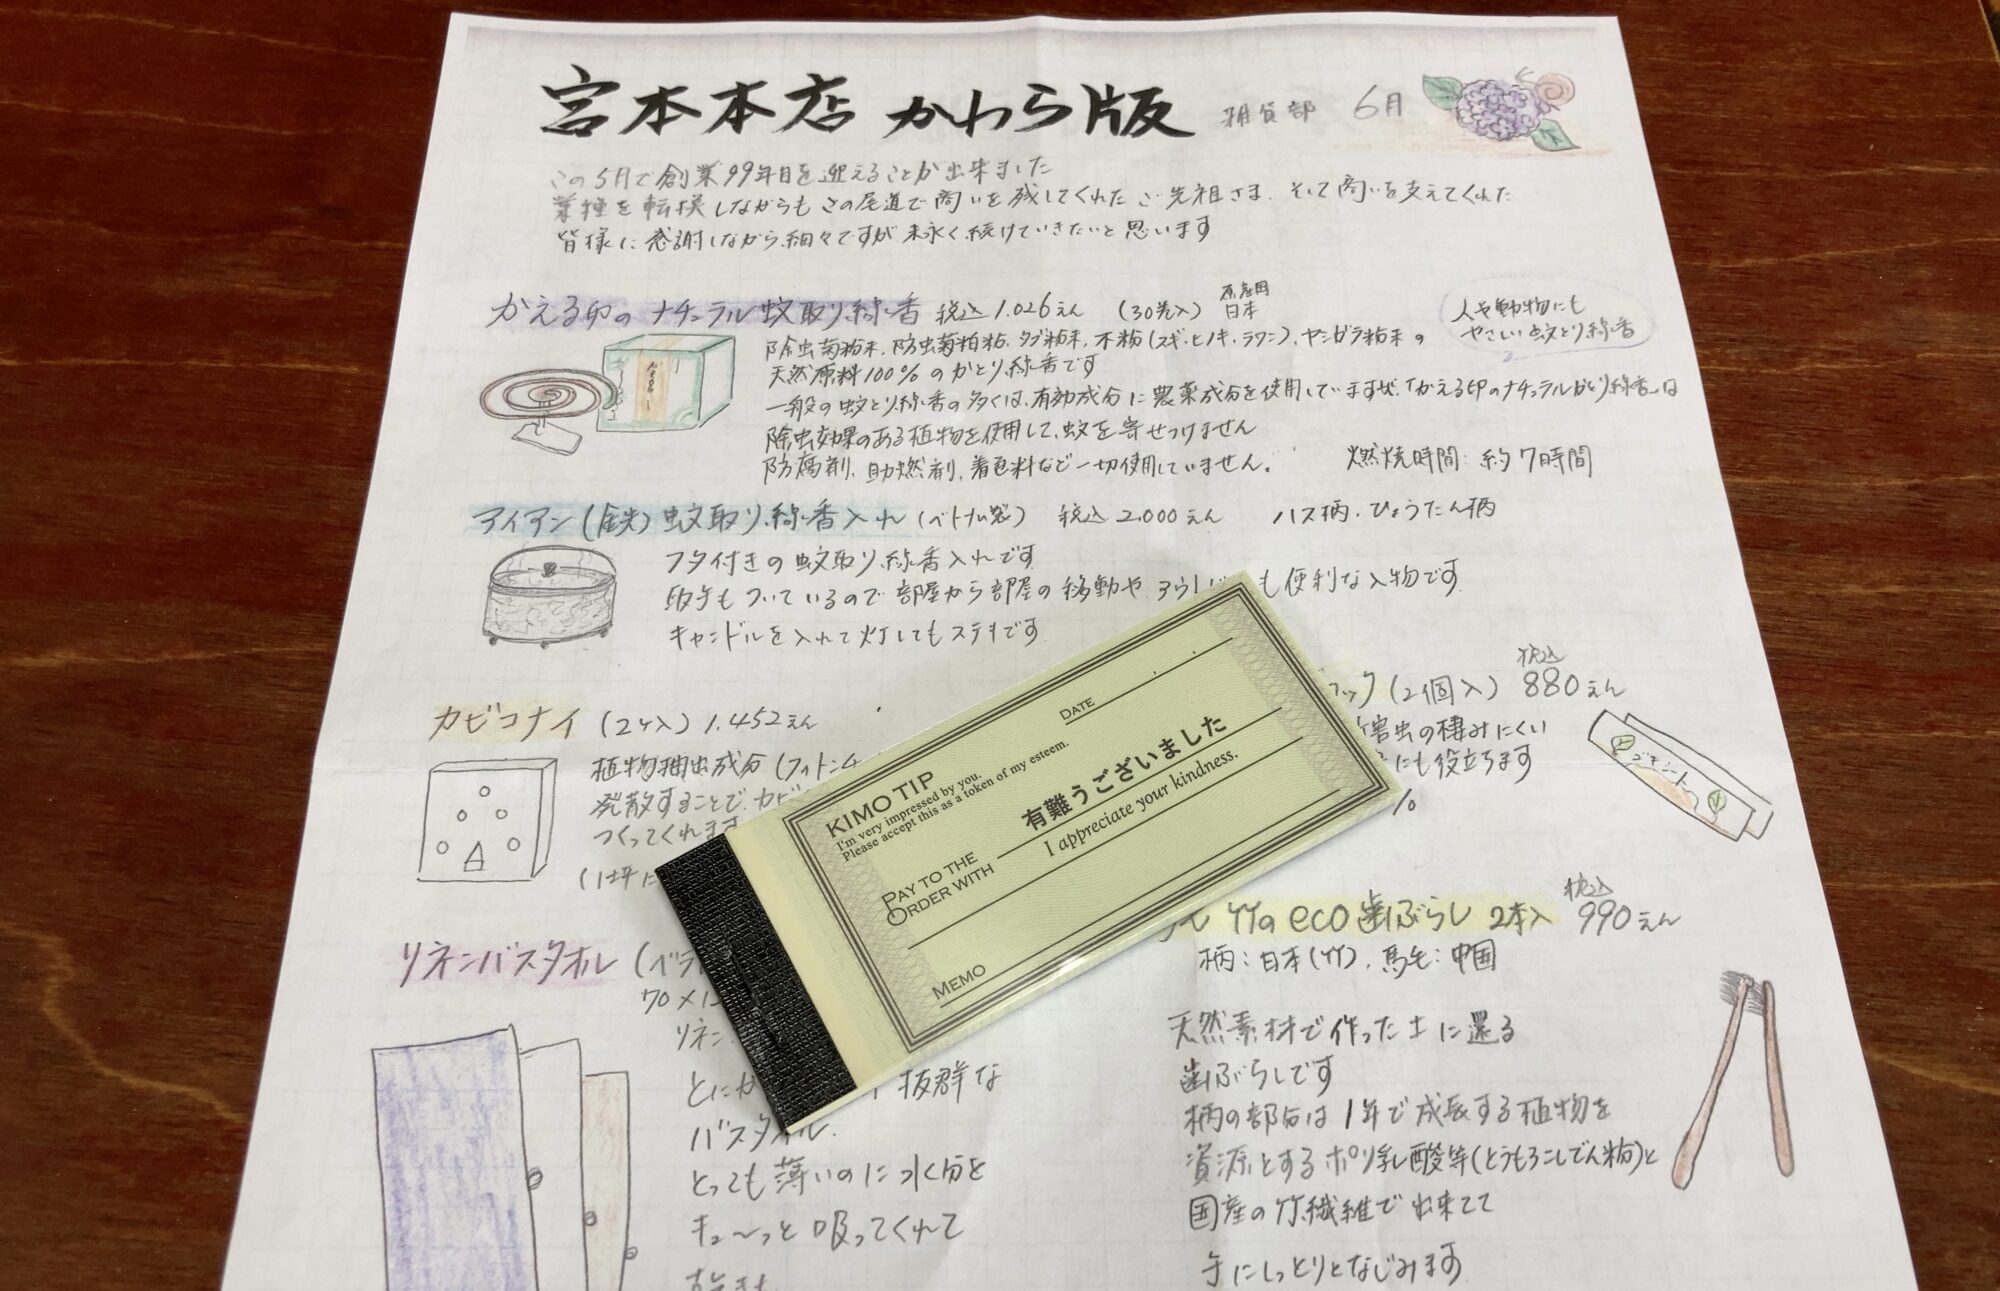 宮本本店 かわら版 雑貨部 6月
この5月で創業99年目を迎えることが出来ました
業種を転換しながらもこの尾道で商いを残してくれたご先祖さま、そして商いを支えてくれた
皆様に感謝しながら細々ですが末永く続けていきたいと思います
かえる印のナチュラル蚊取り線香 税込1.026えん (30巻入) 原産国 日本
人や動物にも
やさしい蚊とり線香
除虫菊粉末、防虫菊粕粉、タブ粉末、木粉(スギ・ヒノキ・ラワン)、ヤシガラ粉末の
天然原料100%のかとり線香です
一般の蚊とり線香の多くは、有効成分に農薬成分を使用していますが、「かえる印のナチュラルかとり線香」は
除虫効果のある植物を使用して、蚊を寄せつけません
防腐剤、助燃剤、着色料など一切使用していません。 燃焼時間:約7時間
アイアン(鉄)蚊取り線香入れ (ベトナム製) 税込2.000えん ハス柄・ひょうたん柄
フタ付きの蚊取り線香入れです
取手もついているので部屋から部屋の移動や も便利な入物です
キャンドルを入れて灯してもステキです
カビコナイ (2ヶ入) 1.452えん
植物抽出成分
発散することで、カビ
つくってくれます
(1坪に
ック (2個入) 税込 880えん
害虫の棲みにくい
にも役立ちます
%
ゴキシート
KIMO TIP
I'm very impressed by you.
Please accept this as a token of my esteem.
DATE
PAY TO THE
ORDER WITH
有難うございました
I appreciate your kindness.
MEMO
リネンバスタオル
70×1
リネン
とにか 抜群な
バスタオル
とっても薄いのに水分を
キュ〜っと吸ってくれて
竹のeco歯ぶらし 2本入 税込 990えん
柄:日本(竹)、馬毛:中国
天然素材で作った土に還る
歯ぶらしです
柄の部分は1年で成長する植物を
資源とするポリ乳酸等(とうもろこしでん粉)と
国産の竹繊維で出来てて
手にしっとりとなじみます